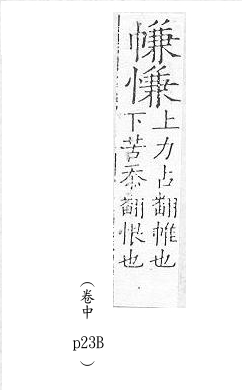 㡘慊
上力占翻帷也
下苦忝翻恨也
（卷中
p23B
）